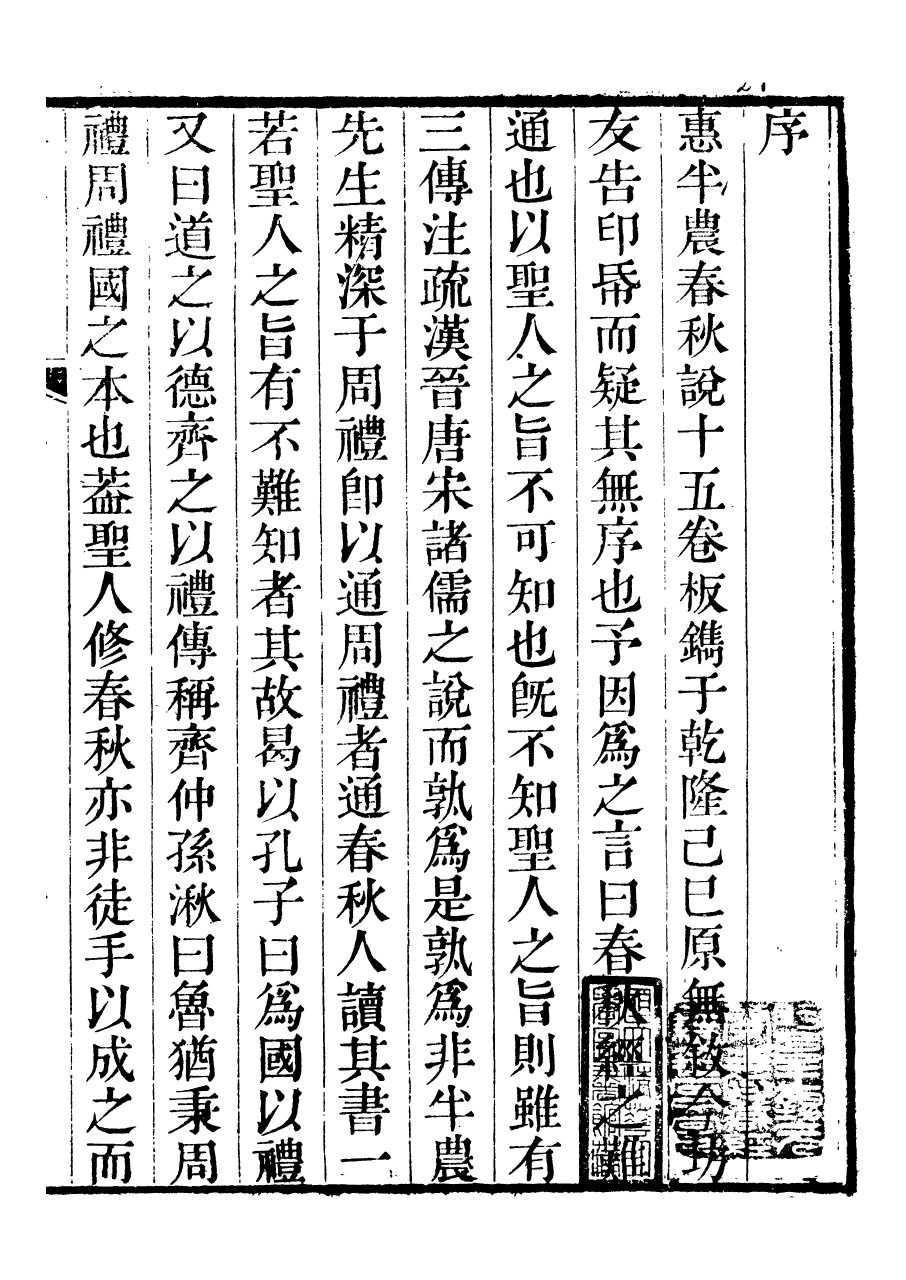 序
惠半農春秋說十五卷板鐫于乾隆己巳原無敘今坊
友告印帋而疑其無序也予因爲之言曰春秋經之難
通也以聖人之旨不可知也旣不知聖人之旨則雖有
三傳注疏漢晉唐宋諸儒之說而孰爲是孰爲非半農
先生精深于周禮卽以通周禮者通春秋人讀其書一
若聖人之旨有不難知者其故曷以孔子曰爲國以禮
又曰道之以德齊之以禮傳稱齊仲孫湫曰魯猶秉周
禮周禮國之本也葢聖人修春秋亦非徒手以成之而